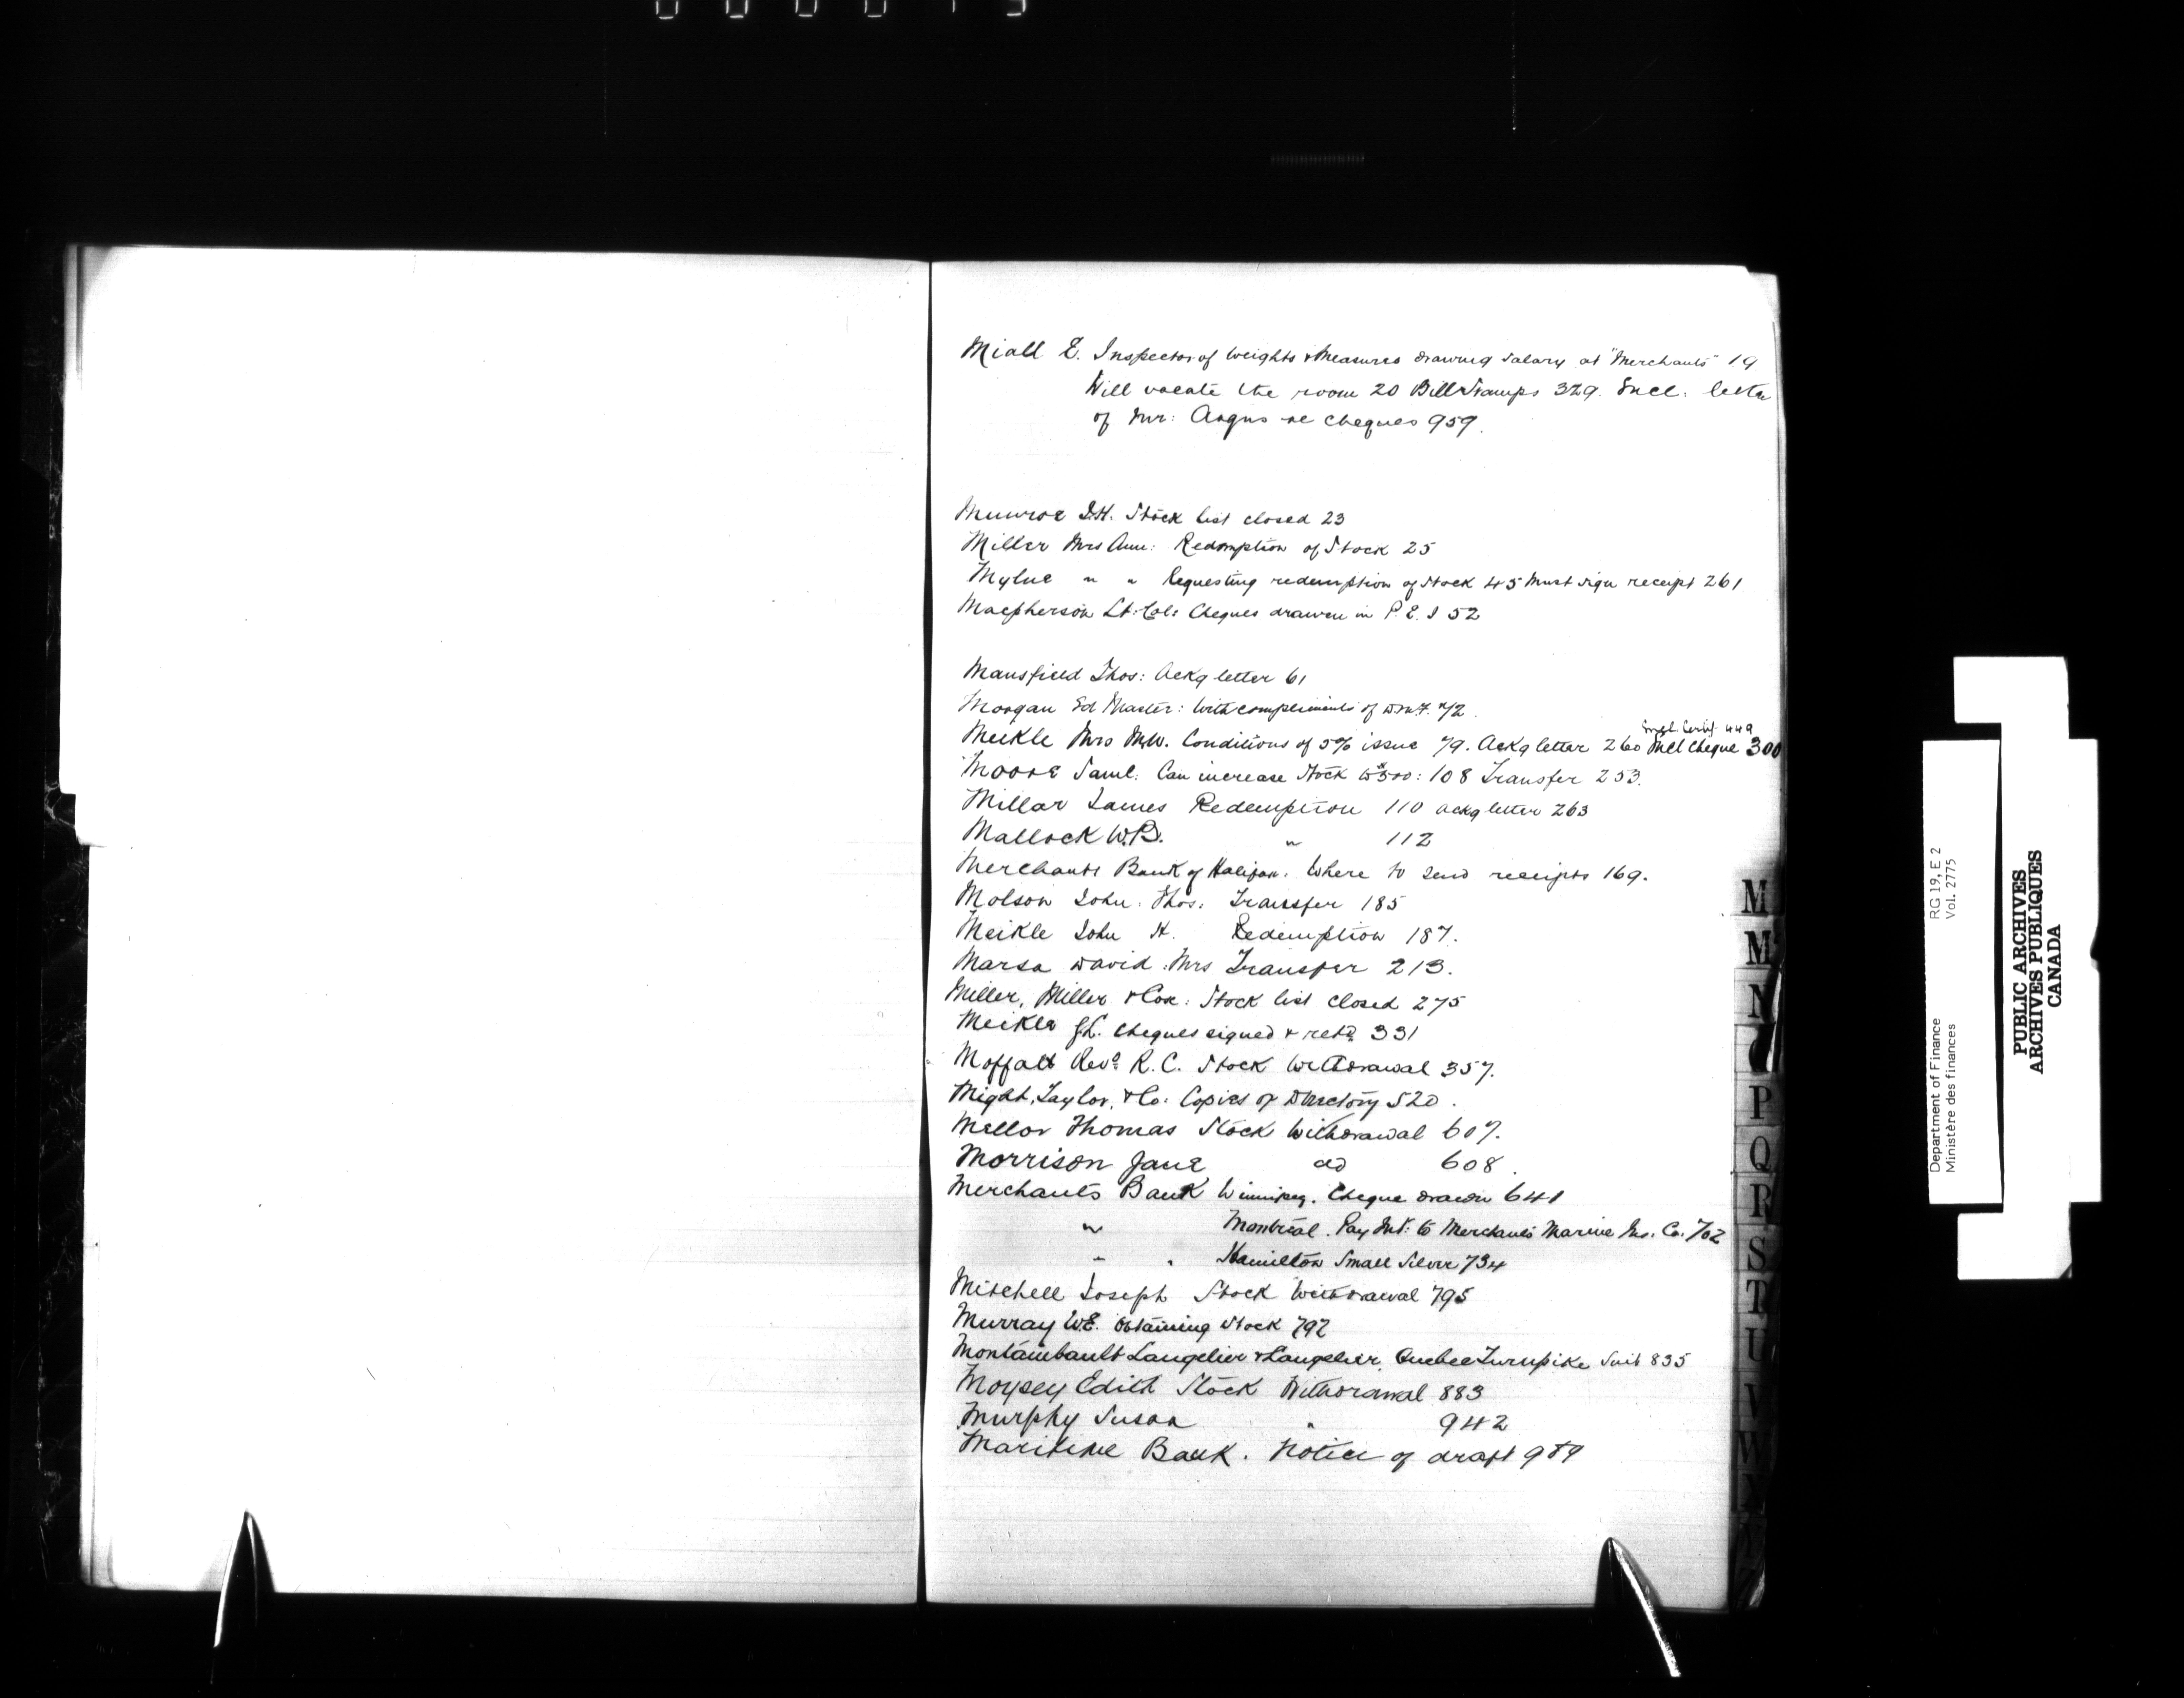 Miall E. Inspector of Weights & Measures drawing salary at "Merchants" 19
Will vacate the room 20 Bill Stamps 329. Encl. letter
of Mr: Angus re cheques 959.
Munroe Stock list closed 23
Miller Mrs Ann: Redemption of Stock 25
Mylne " " Requesting redemption of Stock 45 Must sign receipt 261
Macpherson Lt: Col: Cheques drawn in P.E.I 52
Mansfield Thos: Ackg letter 61
Morgan Ed Master: With compliments of 72
Encl. Certif. 449
Meikle Mrs M.W. Conditions of 5% issue 79. Ackg letter 260 Encl cheque 300
Moore Saml: Can increase Stock to $500: 108 Transfer 253.
Millar James Redemption 110 ackg letter 263
Mallock W.B. " 112
Merchants Bank of Halifax. Where to send receipts 169.
Molson John: Thos: Transfer 185
Meikle John H. Redemption 187.
Marsa David: Mrs Transfer 213.
Miller, Miller & Cox: Stock list closed 275
Meikle J.L. cheques signed & retd 331
Moffatt Revd R.C. Stock Withdrawal 357.
Might, Taylor, & Co: Copies of Directory 520.
Mellor Thomas Stock Withdrawal 607.
Morrison Jane do 608.
Merchants Bank Winnipeg. Cheque drawn 641
" Montreal. Pay Int: to Merchants Marine Ins. Co. 702
" " Hamilton Small Silver 734
Mitchell Joseph Stock Withdrawal 795
Murray W.E. Obtaining Stock 797
Montambault Langelier & Langelier. Quebec Turnpike Suit 835
Moysey Edith Stock Withdrawal 883
Murphy Susan " 942
Maritime Bank. Notice of draft 989
M
M
N
P
Q
R
S
T
U
V
W
X
Department of Finance RG 19, E 2
Ministère des finances Vol. 2775
PUBLIC ARCHIVES
ARCHIVES PUBLIQUES
CANADA